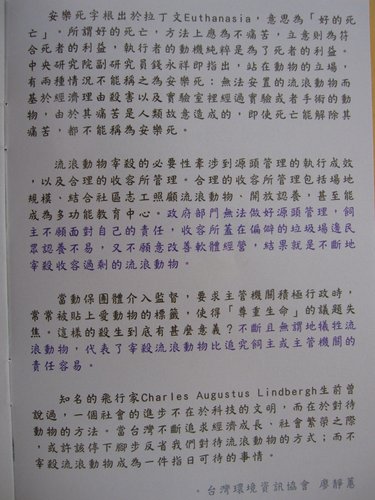 安樂死字根出於拉丁文Euthanasia，意思為「好的死
亡」。所謂好的死亡，方法上應為不痛苦，立意則為符
合死者的利益，執行者的動機純粹是為了死者的利益。
中央研究院副研究員錢永祥即指出，站在動物的立場，
有兩種情況不能稱之為安樂死：無法安置的流浪動物而
基於經濟理由殺害以及實驗室裡經過實驗或者手術的動
物，由於其痛苦是人類故意造成的，即使死亡能解除其
痛苦，都不能稱為安樂死。
流浪動物宰殺的必要性牽涉到源頭管理的執行成效
，以及合理的收容所管理。合理的收容所管理包括場地
規模、結合社區志工照顧流浪動物、開放認養，甚至能
成為多功能教育中心。政府部門無法做好源頭管理，飼
主不願面對自己的責任，收容所蓋在偏僻的垃圾場邊民
眾認養不易，又不願意改善軟體經營，結果就是不斷地
宰殺收容過剩的流浪動物。
當動保團體介入監督，要求主管機關積極行政時，
常常被貼上愛動物的標籤，使得「尊重生命」的議題失
焦。這樣的殺生到底有甚麼意義？不斷且無謂地犧牲流
浪動物，代表了宰殺流浪動物比追究飼主或主管機關的
責任容易。
知名的飛行家Charles Augustus Lindbergh生前曾
說過，一個社會的進步不在於科技的文明，而在於對待
動物的方法。當台灣不斷追求經濟成長、社會繁榮之際
，或許該停下腳步反省我們對待流浪動物的方式；而不
宰殺流浪動物成為一件指日可待的事情。
台灣環境資訊協會 廖靜蕙